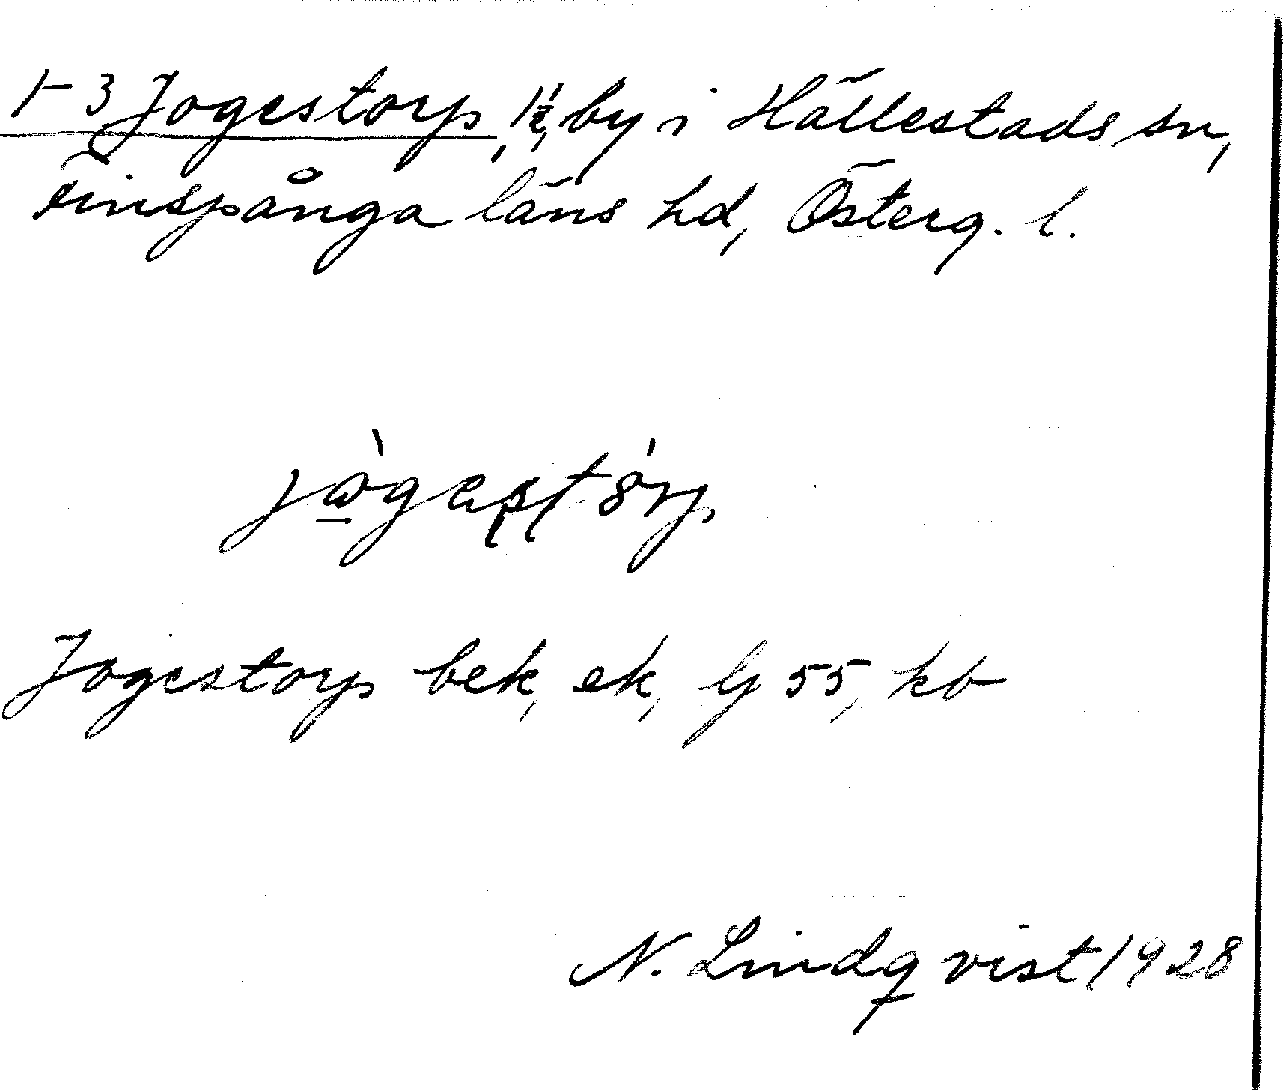 1-3 Jogestorp, 1½, by i Hällestads sn,
Finspånga läns hd, Österg. l.
Jogestorp bek, ek, GJ 55, kb
N. Lindqvist 1928